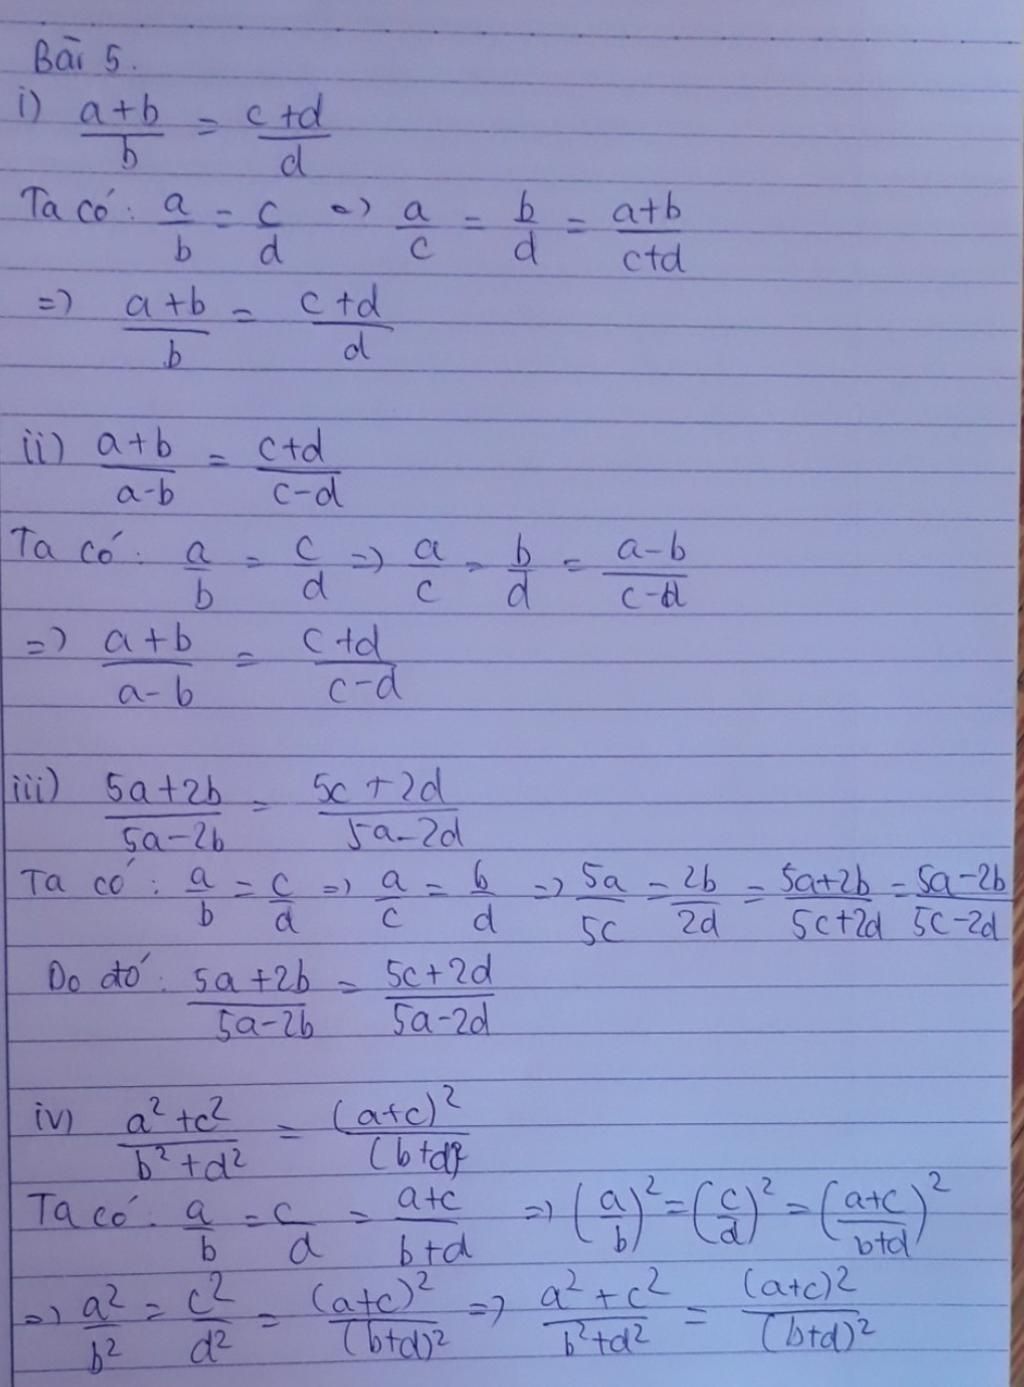 Bài 5.
i) \frac{a+b}{b} = \frac{c+d}{d}
Ta có: \frac{a}{b} = \frac{c}{d} => \frac{a}{c} = \frac{b}{d} = \frac{a+b}{c+d}
=> \frac{a+b}{b} = \frac{c+d}{d}
ii) \frac{a+b}{a-b} = \frac{c+d}{c-d}
Ta có: \frac{a}{b} = \frac{c}{d} => \frac{a}{c} = \frac{b}{d} = \frac{a-b}{c-d}
=> \frac{a+b}{a-b} = \frac{c+d}{c-d}
iii) \frac{5a+2b}{5a-2b} = \frac{5c+2d}{5a-2d}
Ta có: \frac{a}{b} = \frac{c}{d} => \frac{a}{c} = \frac{b}{d} => \frac{5a}{5c} = \frac{2b}{2d} = \frac{5a+2b}{5c+2d} = \frac{5a-2b}{5c-2d}
Do đó: \frac{5a+2b}{5a-2b} = \frac{5c+2d}{5a-2d}
iv) \frac{a²+c²}{b²+d²} = \frac{(a+c)²}{(b+d)²}
Ta có: \frac{a}{b} = \frac{c}{d} = \frac{a+c}{b+d} => (\frac{a}{b})² = (\frac{c}{d})² = (\frac{a+c}{b+d})²
=> \frac{a²}{b²} = \frac{c²}{d²} = \frac{(a+c)²}{(b+d)²} => \frac{a²+c²}{b²+d²} = \frac{(a+c)²}{(b+d)²}